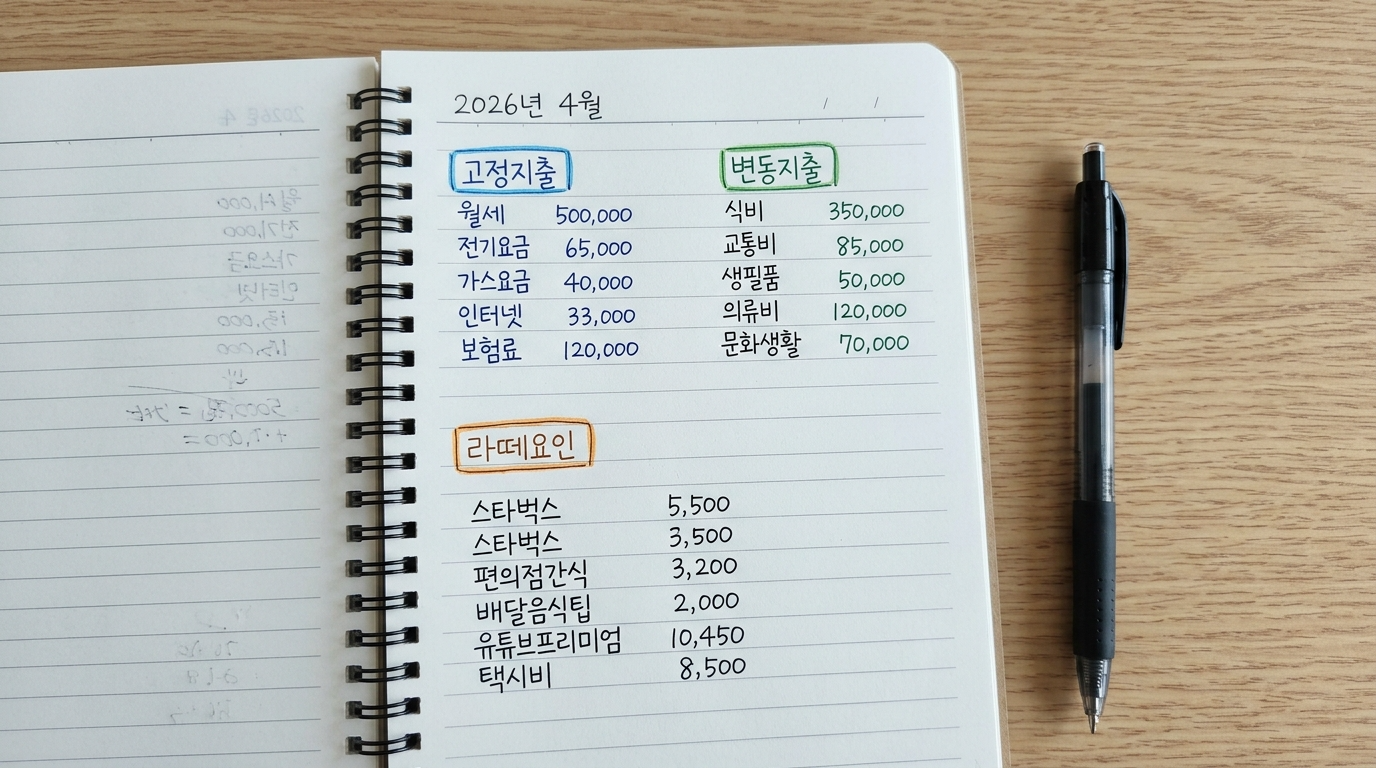 2026년 4월 / /
고정지출
월세 500,000
전기요금 65,000
가스요금 40,000
인터넷 33,000
보험료 120,000
변동지출
식비 350,000
교통비 85,000
생필품 50,000
의류비 120,000
문화생활 70,000
라떼요인
스타벅스 5,500
스타벅스 3,500
편의점간식 3,200
배달음식팁 2,000
유튜브프리미엄 10,450
택시비 8,500